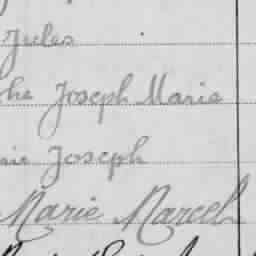 Jules
Joseph Marie
Joseph
Marie Marcel